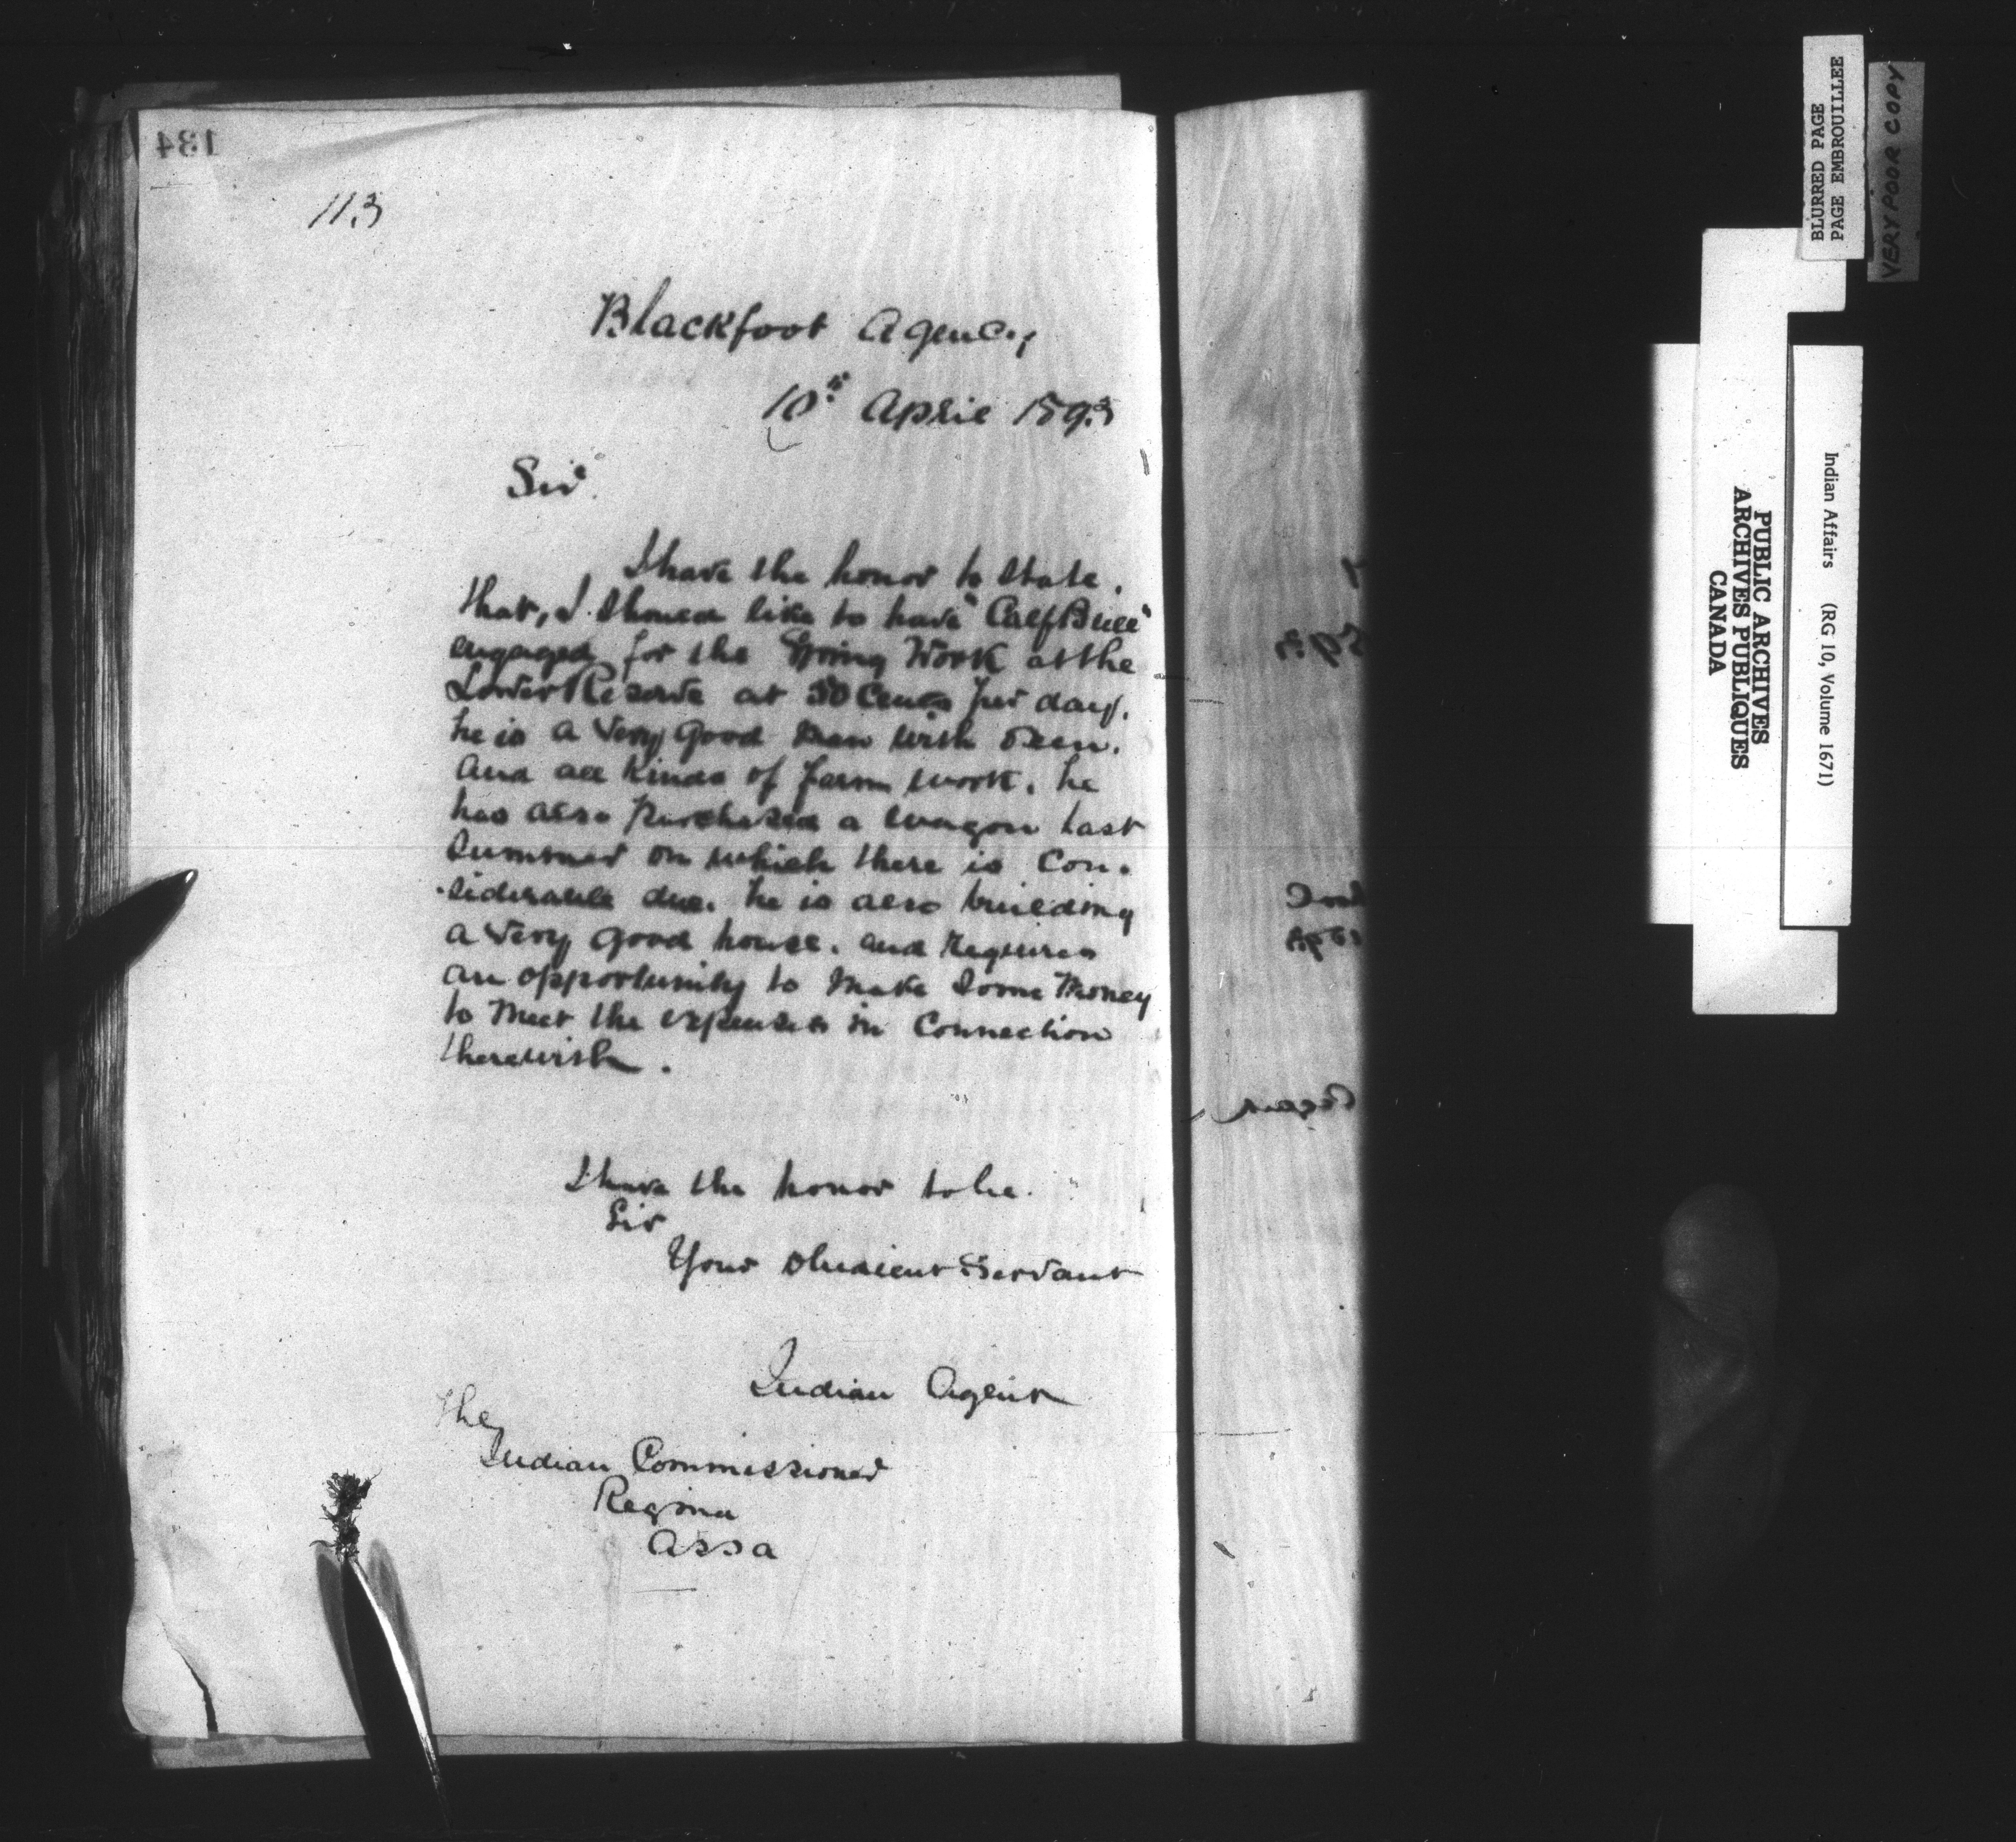 134
113
Blackfoot Agency
10th April 1893
Sir
I have the honor to state,
that, I should like to have "Calf Bull"
engaged for the Spring Work at the
Lower Reserve at 50 Cents per day.
he is a Very Good Man with Oxen.
And all Kinds of farm work. he
has also purchased a wagon last
Summer on which there is Con-
-siderable due. he is also building
a Very Good house. and Requires
an opportunity to Make Some Money
to Meet the expenses in Connection
therewith.
I have the honor to be.
Sir
Your Obedient Servant
Indian Agent
The
Indian Commissioner
Regina
Assa
BLURRED PAGE
PAGE EMBROUILLEE
VERY POOR COPY
Indian Affairs (RG 10, Volume 1671)
PUBLIC ARCHIVES
ARCHIVES PUBLIQUES
CANADA